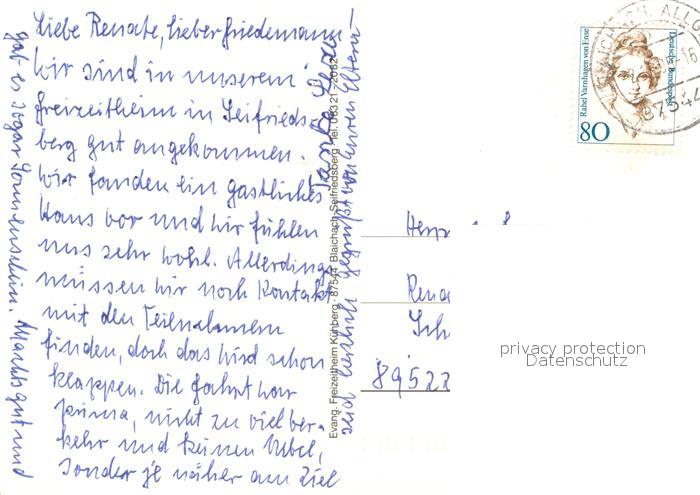 Liebe Renate, lieber Friedemann
wir sind in unserem
Freizeitheim in Seifrieds-
berg gut angekommen.
Wir fanden ein gastliches
Haus vor und wir fühlen
uns sehr wohl. Allerdings
müssen wir noch Kontakt
mit den Teilnehmern
finden, doch das wird schon
klappen. Die Fahrt war
prima, nicht zu viel Ver-
kehr und keinen Nebel,
sonder je näher am Ziel
gab es sogar Sonnenschein. Machts gut und
seid herzlich gegrüßt von euren Eltern
Evang. Freizeitheim Kühberg - 87544 Blaichach-Seifriedsberg Tel. 08321 - 2082
Rahel Varnhagen von Ense
Deutsche Bundespost
80
87544
Rena
Sch
89522
privacy protection
Datenschutz